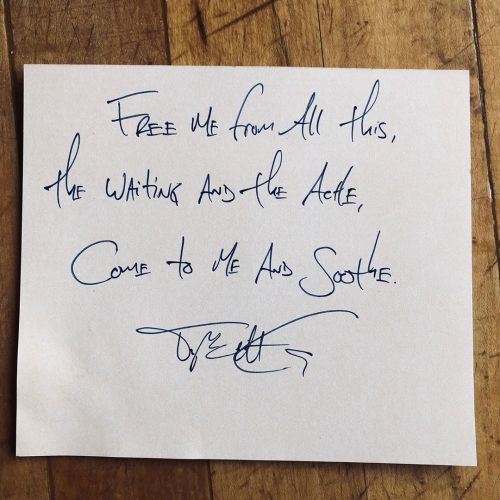 Free me from All this,
the waiting and the Ache,
Come to me and Soothe.